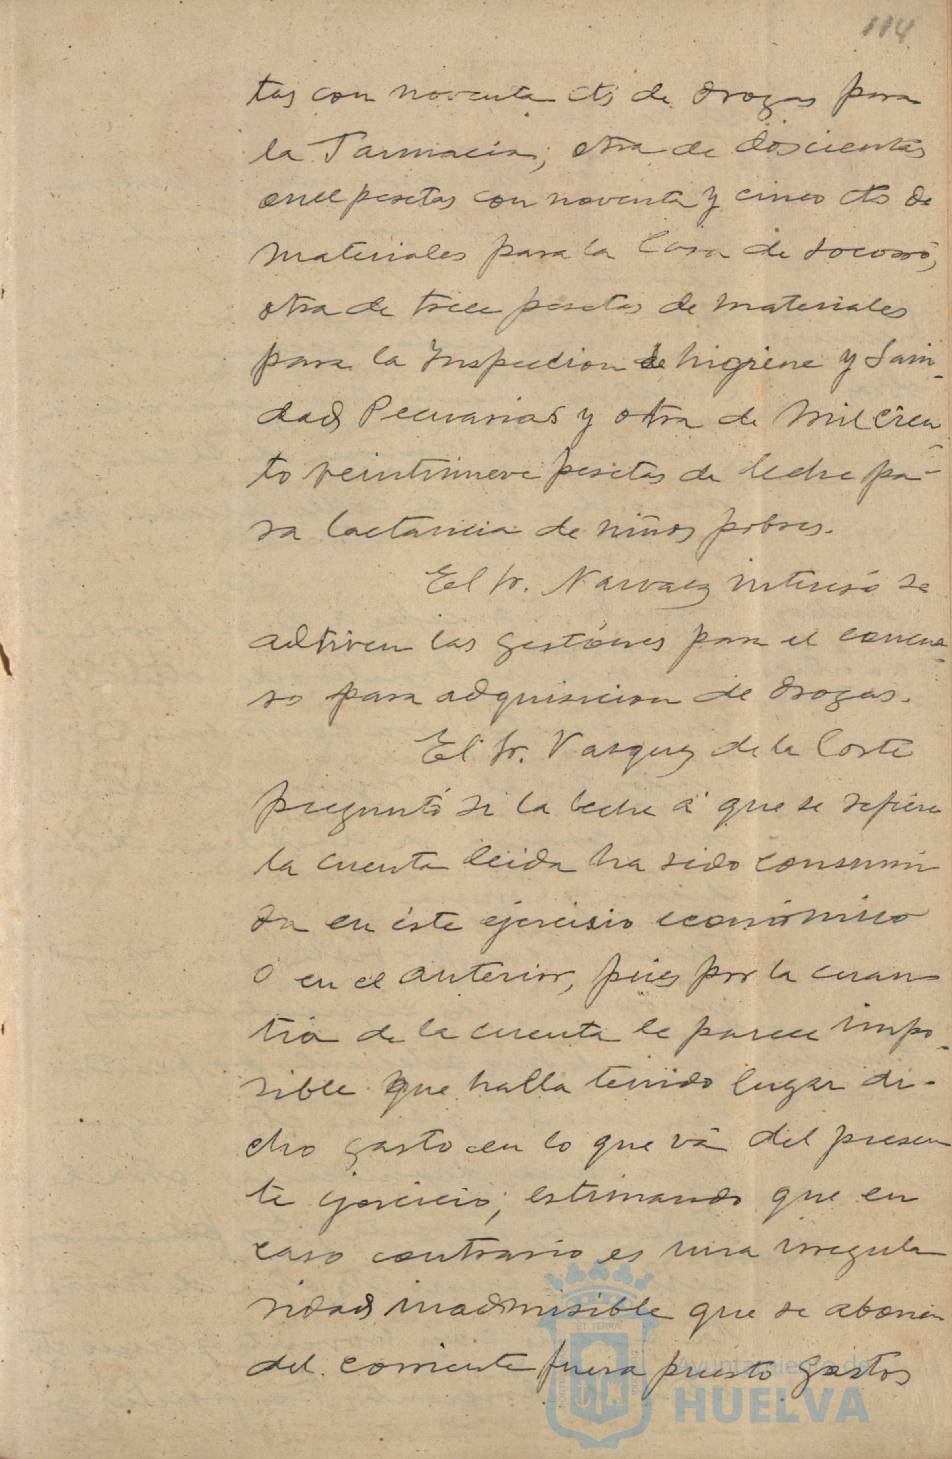 114
tas con noventa cts de drogas para
la Farmacia; otra de doscientas
once pesetas con noventa y cinco cts de
materiales para la Casa de Socorro,
otra de trece pesetas de materiales
para la Inspeccion de higiene y Sani-
dad Pecuarias y otra de mil cien-
to veintinueve pesetas de leche pa-
ra lactancia de niños pobres.
El Sr. Narvaez interesó se
activen las gestiónes para el concur-
so para adquisicion de drogas.
El Sr. Vazquez de la Corte
preguntó si la leche á que se refiere
la cuenta leida ha sido consumi
da en éste ejercisio económico
o en el anterior, pues por la cuan
tia de la cuenta le parece impo-
sible que halla tenido lugar di-
cho gasto en lo que vá del presen
te ejercicio; estimando que en
caso contrario es una irregula
ridad inadmisible que se abonen
del corriente presupuesto gastos
Ayuntamiento de
HUELVA